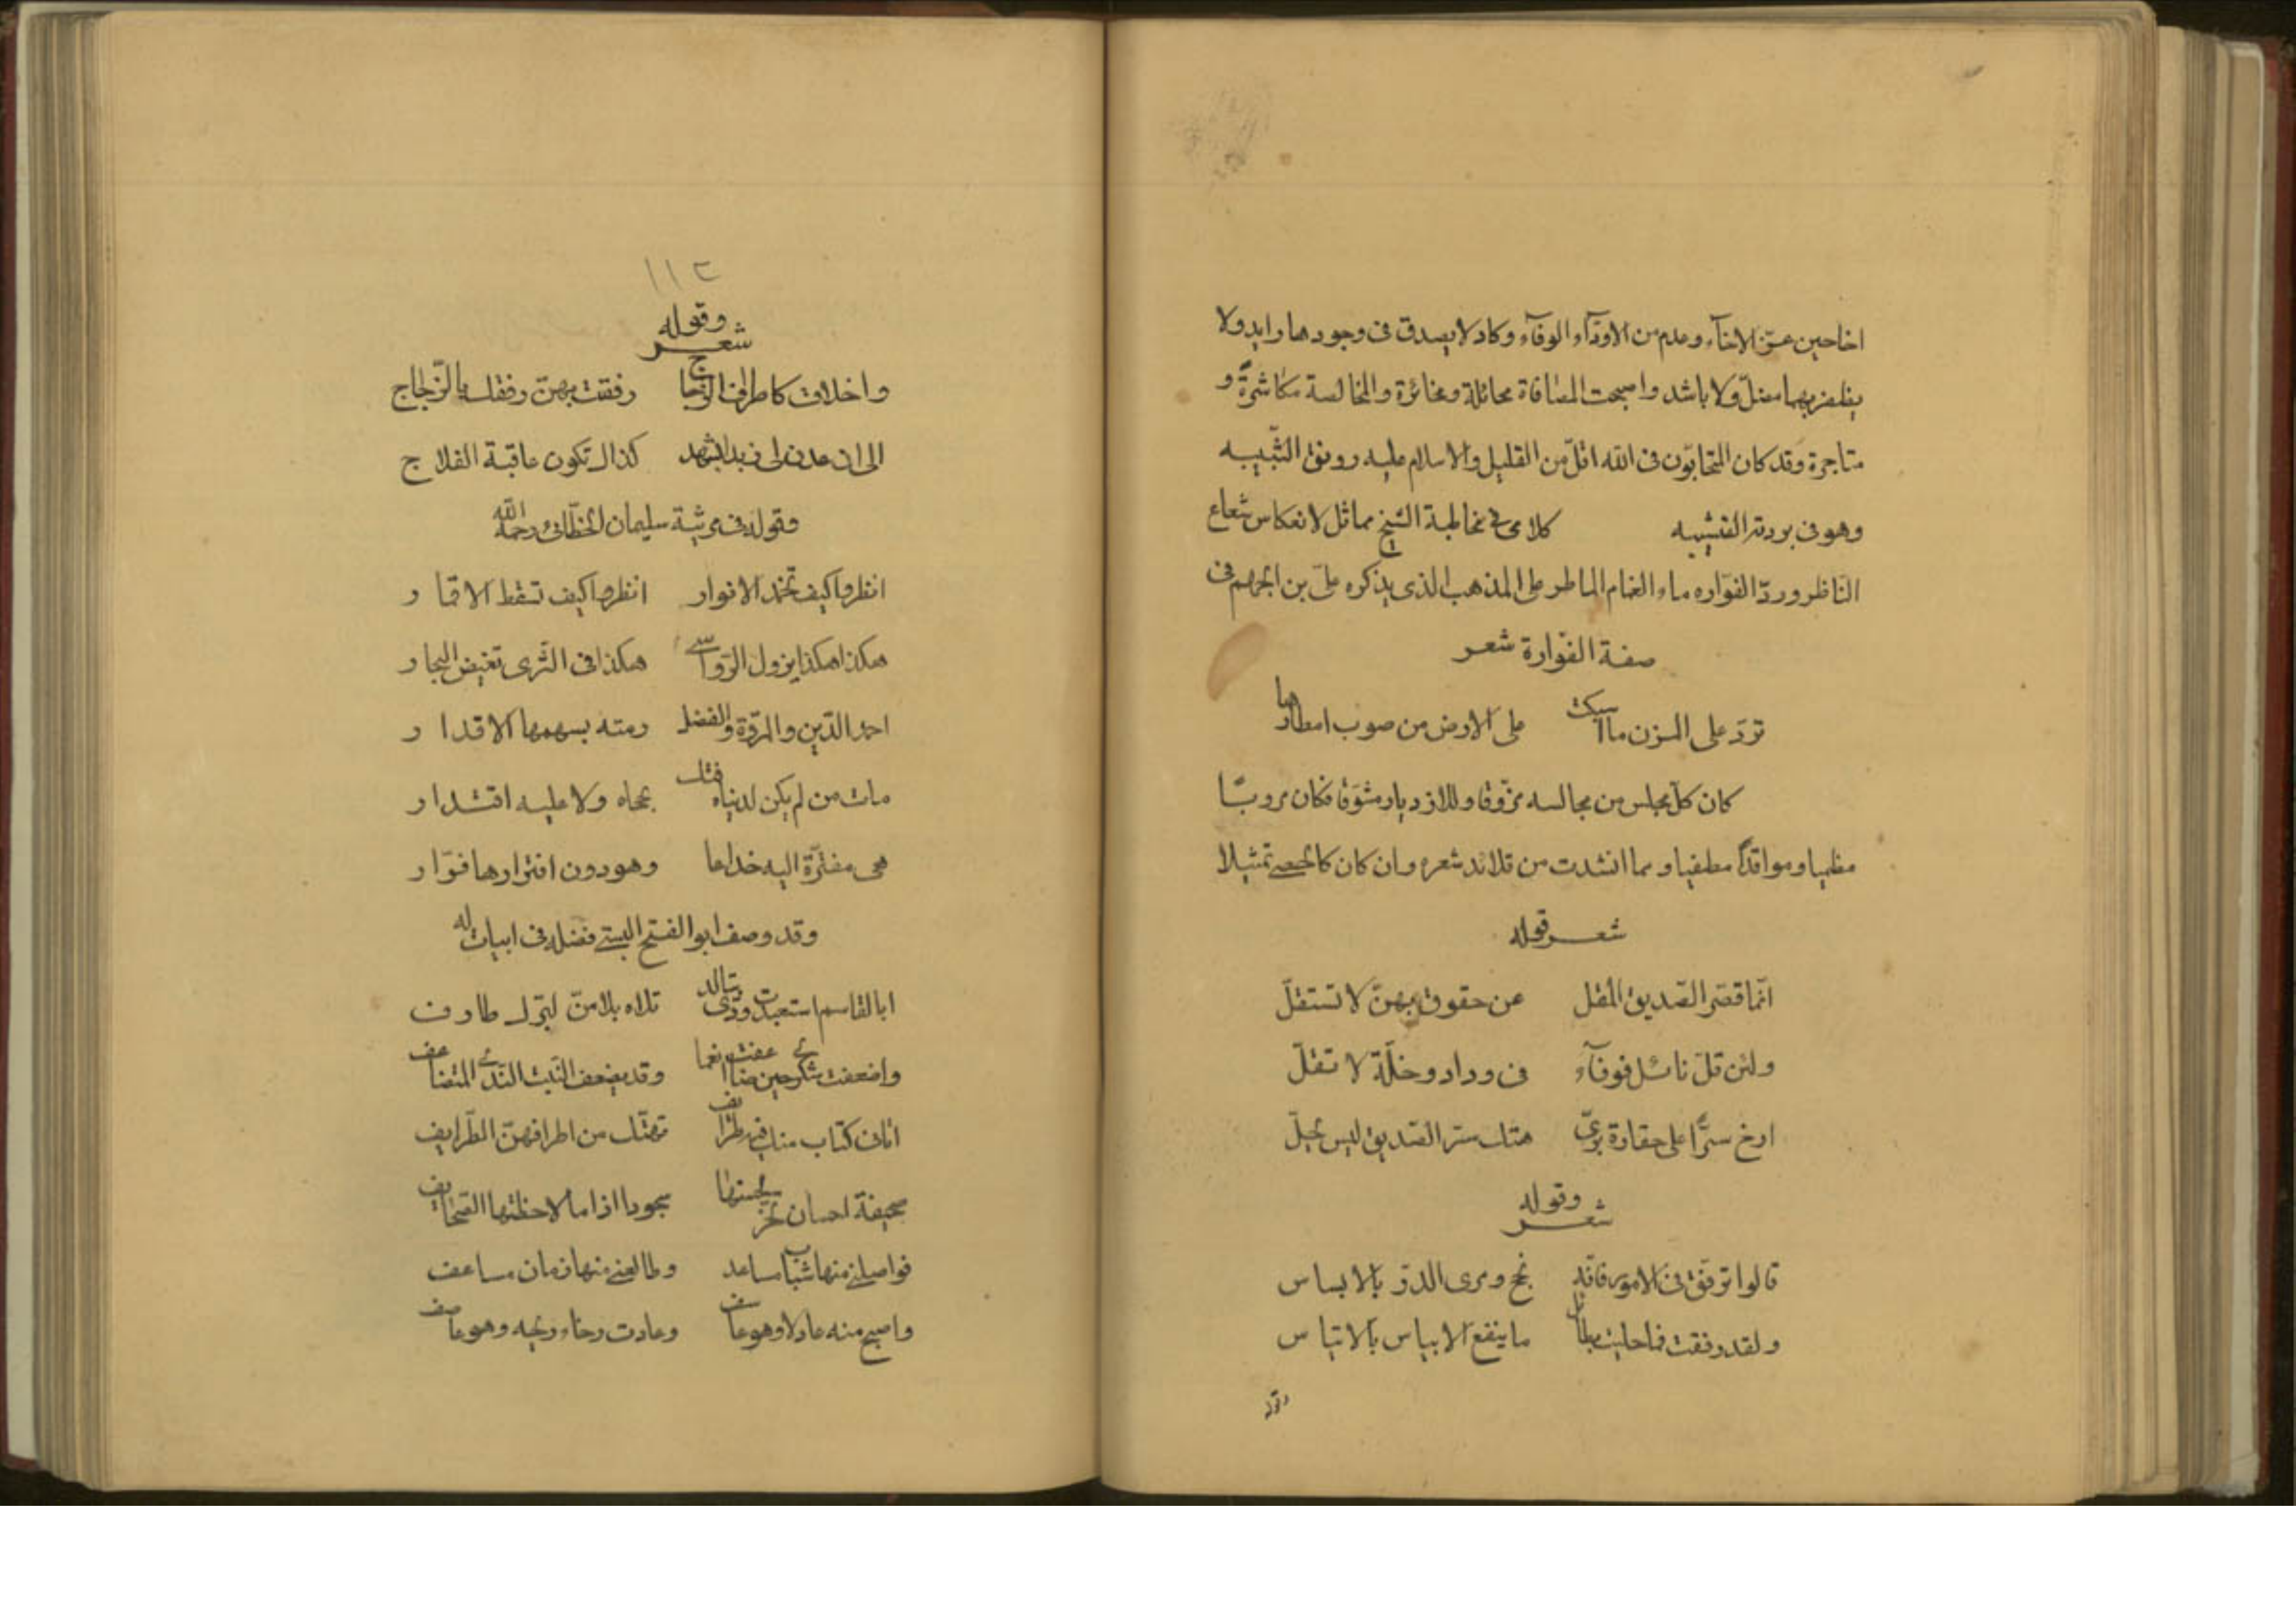 اخا حين عزّ الاخآء وعدم من الاودّآء الوفآء وكاد لا يصدق فى وجودها رايد ولا
يظفر بهما مضلّ ولا ناشد واصبحت المصافاة مخاتلة والمخالسة مكاشرة و
متاجرة وقد كان المتحابّون فى الله اقلّ من القليل والاسلام عليه رونق الشّبيبه
وهو فى بردته القشيبه كلامى فى مخاطبة الشيخ مماثل لانعكاس شعاع
النّاظر وردّ الفوّاره ماء الغمام الماطر على المذهب الذى يذكره علىّ بن الجهم فى
صفة الفوّارة شعر
تردّ على المزن ما اسبلت على الارض من صوب امطارها
كان كلّ مجلس من مجالسه مزوّقا وللازدياد مشوّقا فكان مرويّا
مظميا وموقدا مطفيا ومما انشدت من قلائد شعره وان كان كالحصى تمثيلا
شعر قوله
انّما قصّر الصّديق المقل عن حقوق بهنّ لا تستقلّ
ولئن قلّ نائل فوفآء فى وداد وخلّة لا تقلّ
ارخ سترا على حقارة برّى هتك ستر الصّديق ليس يحلّ
وقوله
شعر
قالوا ترفّق فى الامور فانّه نجح ومرى الدرّ بالابساس
ولقد رفقت فما حليت بطائل ما ينفع الابساس بالاتياس
وقوله
١١٢
وقوله
شعر
واخلاق كاطراف الزجاج رفقت بهنّ رفقك بالزّجاج
الى ان عدن لى زبدا بشهد كذاك تكون عاقبة الفلاج
وقوله فى مرثية سليمان الخطّابى رحمه الله
انظروا كيف تخمد الانوار انظروا كيف تسقط الاقمار
هكذا هكذا يزول الرّواسى هكذا فى الثّرى تغيض البحار
احمد الدّين والمروّة والفضل رمته بسهمها الاقدار
مات من لم يكن لدنياه فتك بحجاه ولا عليه اقتدار
هى مفترّة اليه خداعا وهو دون افترارها فرّار
وقد وصف ابو الفتح البستى فضله فى ابيات له
ابا القاسم استعبدت ودّى بتالد تلاه بلا منّ لبرّك طارف
واضعفت شكرى حين ضاعفت انعما وقد يضعف النّبت النّدى المتضاعف
اتانى كتاب منك فيه طرائف تهتّك من اطرافهنّ الطّرايف
صحيفة احسان تخرّ لحسنها سجودا اذا ما لاحظتها الصّحايف
فواصلنى منها شباب مساعد وطالعنى منها زمان مساعف
واصبح منه عادلا وهو عاسف وعادت رخاء ريحه وهو عاصف